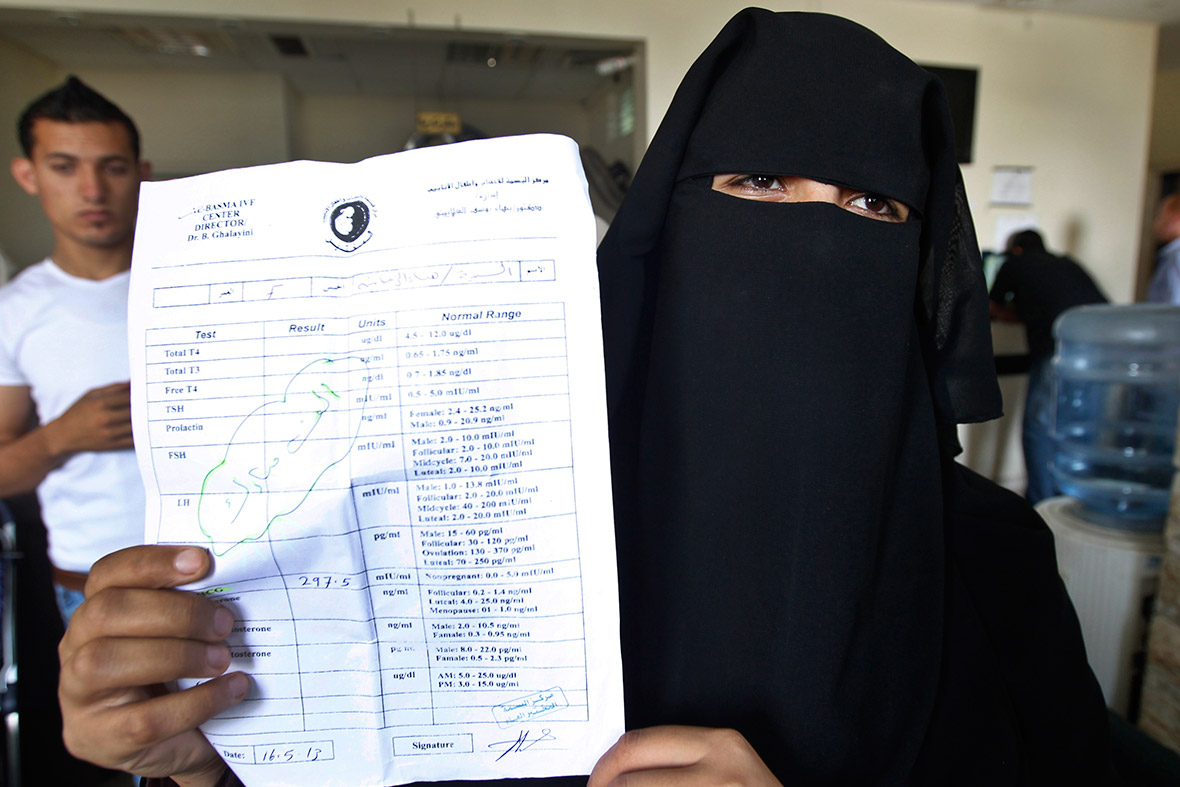 BASMA IVF
CENTER
DIRECTOR:
Dr. B. Ghalayini
مركز البسمة للإخصاب وأطفال الأنابيب
الاسم
السيدة /
الجنس
F
العمر
Test Result Units Normal Range
Total T4 ug/dl 4.5 - 12.0 ug/dl
Total T3 ng/ml 0.65 - 1.75 ng/ml
Free T4 ng/dl 0.7 - 1.85 ng/dl
TSH mIU/ml 0.5 - 5.0 mIU/ml
Prolactin ng/ml Female: 2.4 - 25.2 ng/ml
Male: 0.9 - 20.9 ng/ml
FSH mIU/ml Male: 2.0 - 10.0 mIU/ml
Follicular: 2.0 - 10.0 mIU/ml
Midcycle: 7.0 - 20.0 mIU/ml
Luteal: 2.0 - 10.0 mIU/ml
LH mIU/ml Male: 1.0 - 13.8 mIU/ml
Follicular: 2.0 - 20.0 mIU/ml
Midcycle: 40 - 200 mIU/ml
Luteal: 2.0 - 20.0 mIU/ml
pg/ml Male: 15 - 60 pg/ml
Follicular: 30 - 120 pg/ml
Ovulation: 130 - 370 pg/ml
Luteal: 70 - 250 pg/ml
CG 297.5 mIU/ml Nonpregnant: 0.0 - 5.0 mIU/ml
erone ng/ml Follicular: 0.2 - 1.4 ng/ml
Luteal: 4.0 - 25.0 ng/ml
Menopause: 01 - 1.0 ng/ml
sterone ng/ml Male: 2.0 - 10.5 ng/ml
Famale: 0.3 - 0.95 ng/ml
tosterone Male: 8.0 - 22.0 pg/ml
Famale: 0.5 - 2.3 pg/ml
ug/dl AM: 5.0 - 25.0 ug/dl
PM: 3.0 - 15.0 ug/ml
مركز البسمة
Date: 16.5.13 Signature